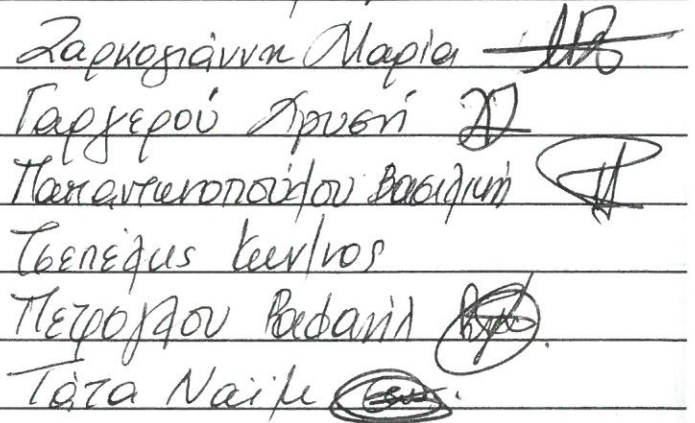 Ζαρκογιάννη Μαρία
Γαργερού Χρυσή
Παπαντωνοπούλου Βασιλική
Τσεπέλης Κων/νος
Πετρόγλου Ραφαήλ
Τάτα Ναίμε